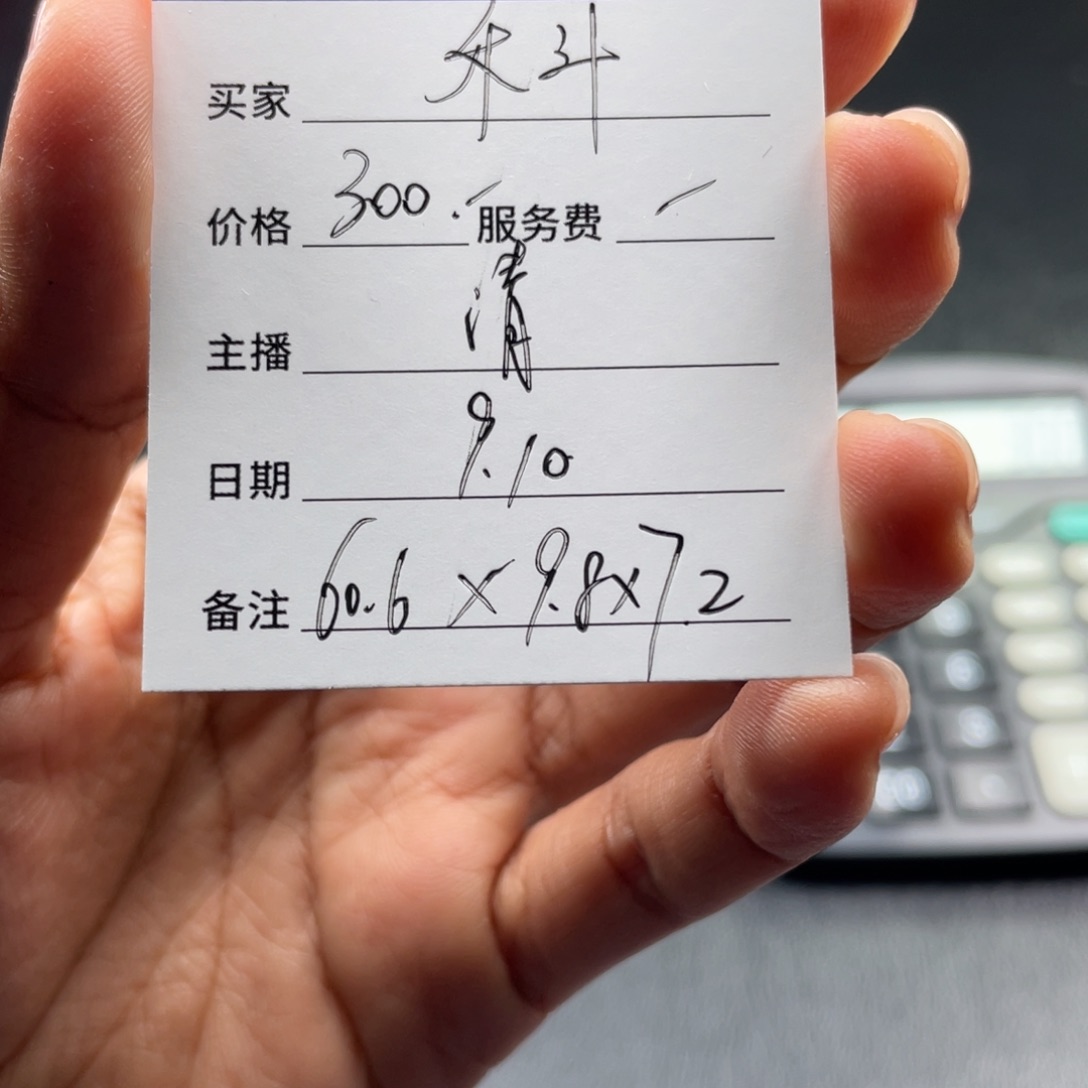 买家 禾斗
价格 300.- 服务费 -
主播 清
日期 9.10
备注 60.6 × 9.8×7.2